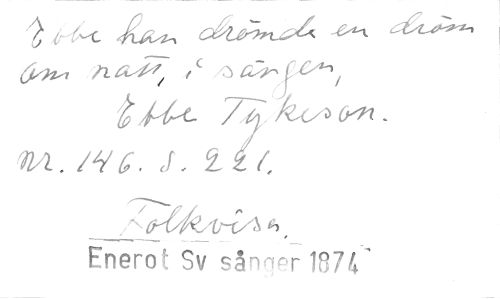 Ebbe han drömde en dröm
om natt, i sängen,
Ebbe Tykeson.
nr. 146. s. 221.
Folkvisa.
Enerot Sv sånger 1874